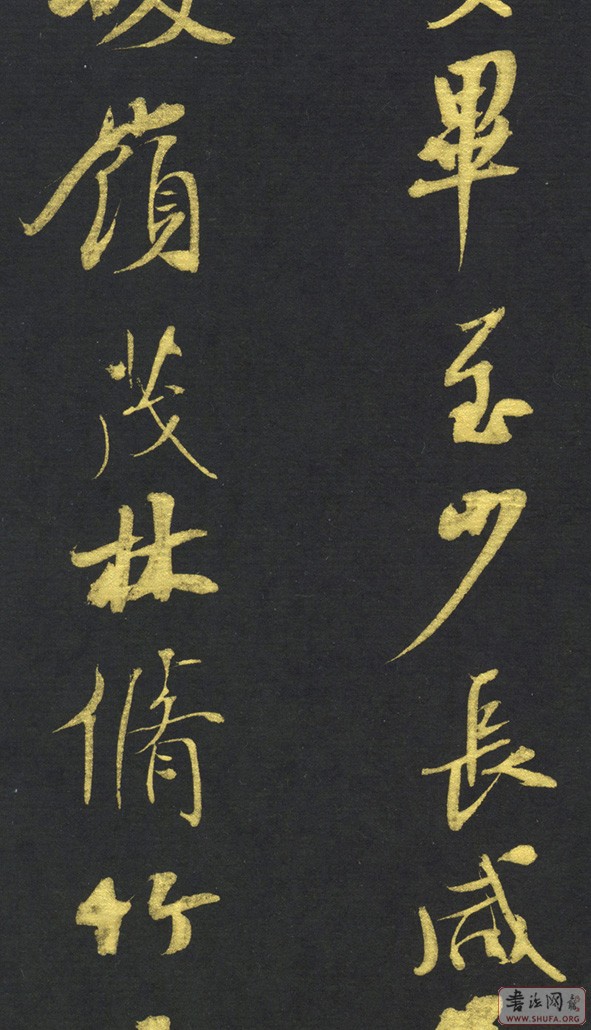 畢至少長咸
嶺茂林脩竹
書法网
WWW.SHUFA.ORG